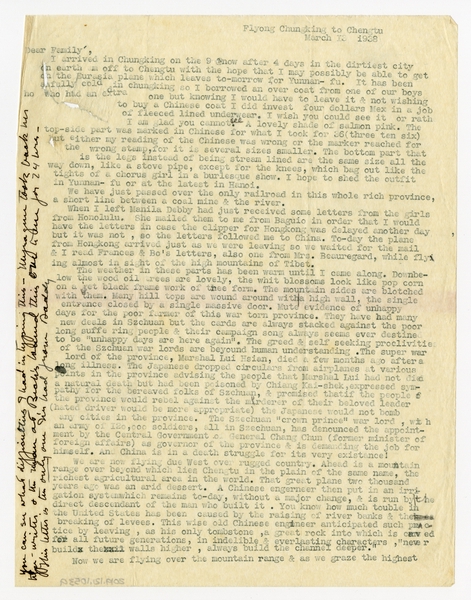 Flyong Chungking to Chengtu
March 13 1938
Dear Family',
I arrived in Chungking on the 9 @now after 4 days in the dirtiest city
on earth am off to Chengtu with the hope that I may possibly be able to get
on the Eurasia plane which leaves to-morrow for Yunnan- fu. It has been
really cold in chungking so I borrowed an over coat from one of our boys
who had an extra one but knowing I would have to leave it & not wishing
to buy a Chinese coat I did invest four dollars Mex in a job
of fleeced lined underwear. I wish you could see it or rath
I am glad you cannot a lovely shade of salmon pink. The
top-side part was marked in Chinese for what I took for 36 (three ten six)
but either my reading of the Chinese was wrong or the marker reached for
the wrong stamp, for it is several sizes smaller. The bottom part that
is the legs instead of being stream lined are the same size all the
way down, like a stove pipe, except for the knees, which bag out like the
tights of a chorus girl in a burlesque show. I hope to shed the outfit
in Yunnan- fu or at the latest in Hanoi.
We have just passed over the only railroad in this whole rich province,
a short line between a coal mine & the river.
When I left Manila Bobby had just received some letters from the girls
from Honolulu. She mailed them to me from Baguio in order that I would
have the letters in case the clipper for Hongkong was delayed another day
but it was not , so the letters followed me to China. To-day the plane
from Hongkong arrived just as we were leaving so we waited for the mail
& I read Frances & Bo's letters, also one from Mrs. Beauregard, while fly
ing almost in sight of the high mountains of Tibet.
The weather in these parts has been warm until I came along. Downbe-
low the wooded areas are lovely, the whit blossoms look like pop corn
on a wet black frame work of tree form. The mountain sides are blotched
with them. Many hill tops are wound around with high wall, the single
entrance closed by a single massive door. Mute evidence of unhappy
days for the poor farmer of this war torn province. They have had many
new deals in Szchuan but the cards are always stacked against the poor
long suffering people & their campaign song always seems ever destine
to be "unhappy days are here again". The greed & self seeking proclivities
of the Szchuan war lords are beyond human understanding .The super war
lord of the province, Marshal Lui Hsian, died a few months ago after a
long illness. The Japanese dropped circulars from airplanes at various
points in the province advising the people that Marshal Lui had not died
a natural death but had been poisoned by Chiang Kai-shek, expressed sym
pathy for the bereaved folks of Szchuan, & promised that if the people
the province would rebel against the murderer of their beloved leader
(hated driver would be more appropriate) the Japanese would not bomb
any cities in the province. The Szechuan "crown prince" war lord , with
an army of 180,000 soldiers, all in Szechuan, has denounced the appoint-
ment by the Central Government of General Chang Chun (former minister of
Foreign affairs) as governor of the province & is demanding the job for
himself. And China is in a death struggle for its very existance!
We are now flying due West over rugged country. Ahead is a mountain
range over beyond which lies Chengtu in the plain of the same name, the
richest agricultural area in the world. That great plane two thousand
years ago was an arid desert. A Chinese engenerer then put in an irri
gation system which remains to-day, without a major change, & is run by the
direct descendant of the man who built it. You know how much trouble in
the United States has been caused by the raising of river banks & the
breaking of levees. This wise old Chinese engineer anticipated such prac
ice by leaving, as his only tombstone ,a great rock into which is carved
for all future generations, in indelible & everlasting characters ,"never
build the walls higher , always build the channel deeper.
Now we are flying over the mountain range & as we graze the highest
you can see what difficulties I had in typing this -
type-writer & the repair at
This letter is the only one